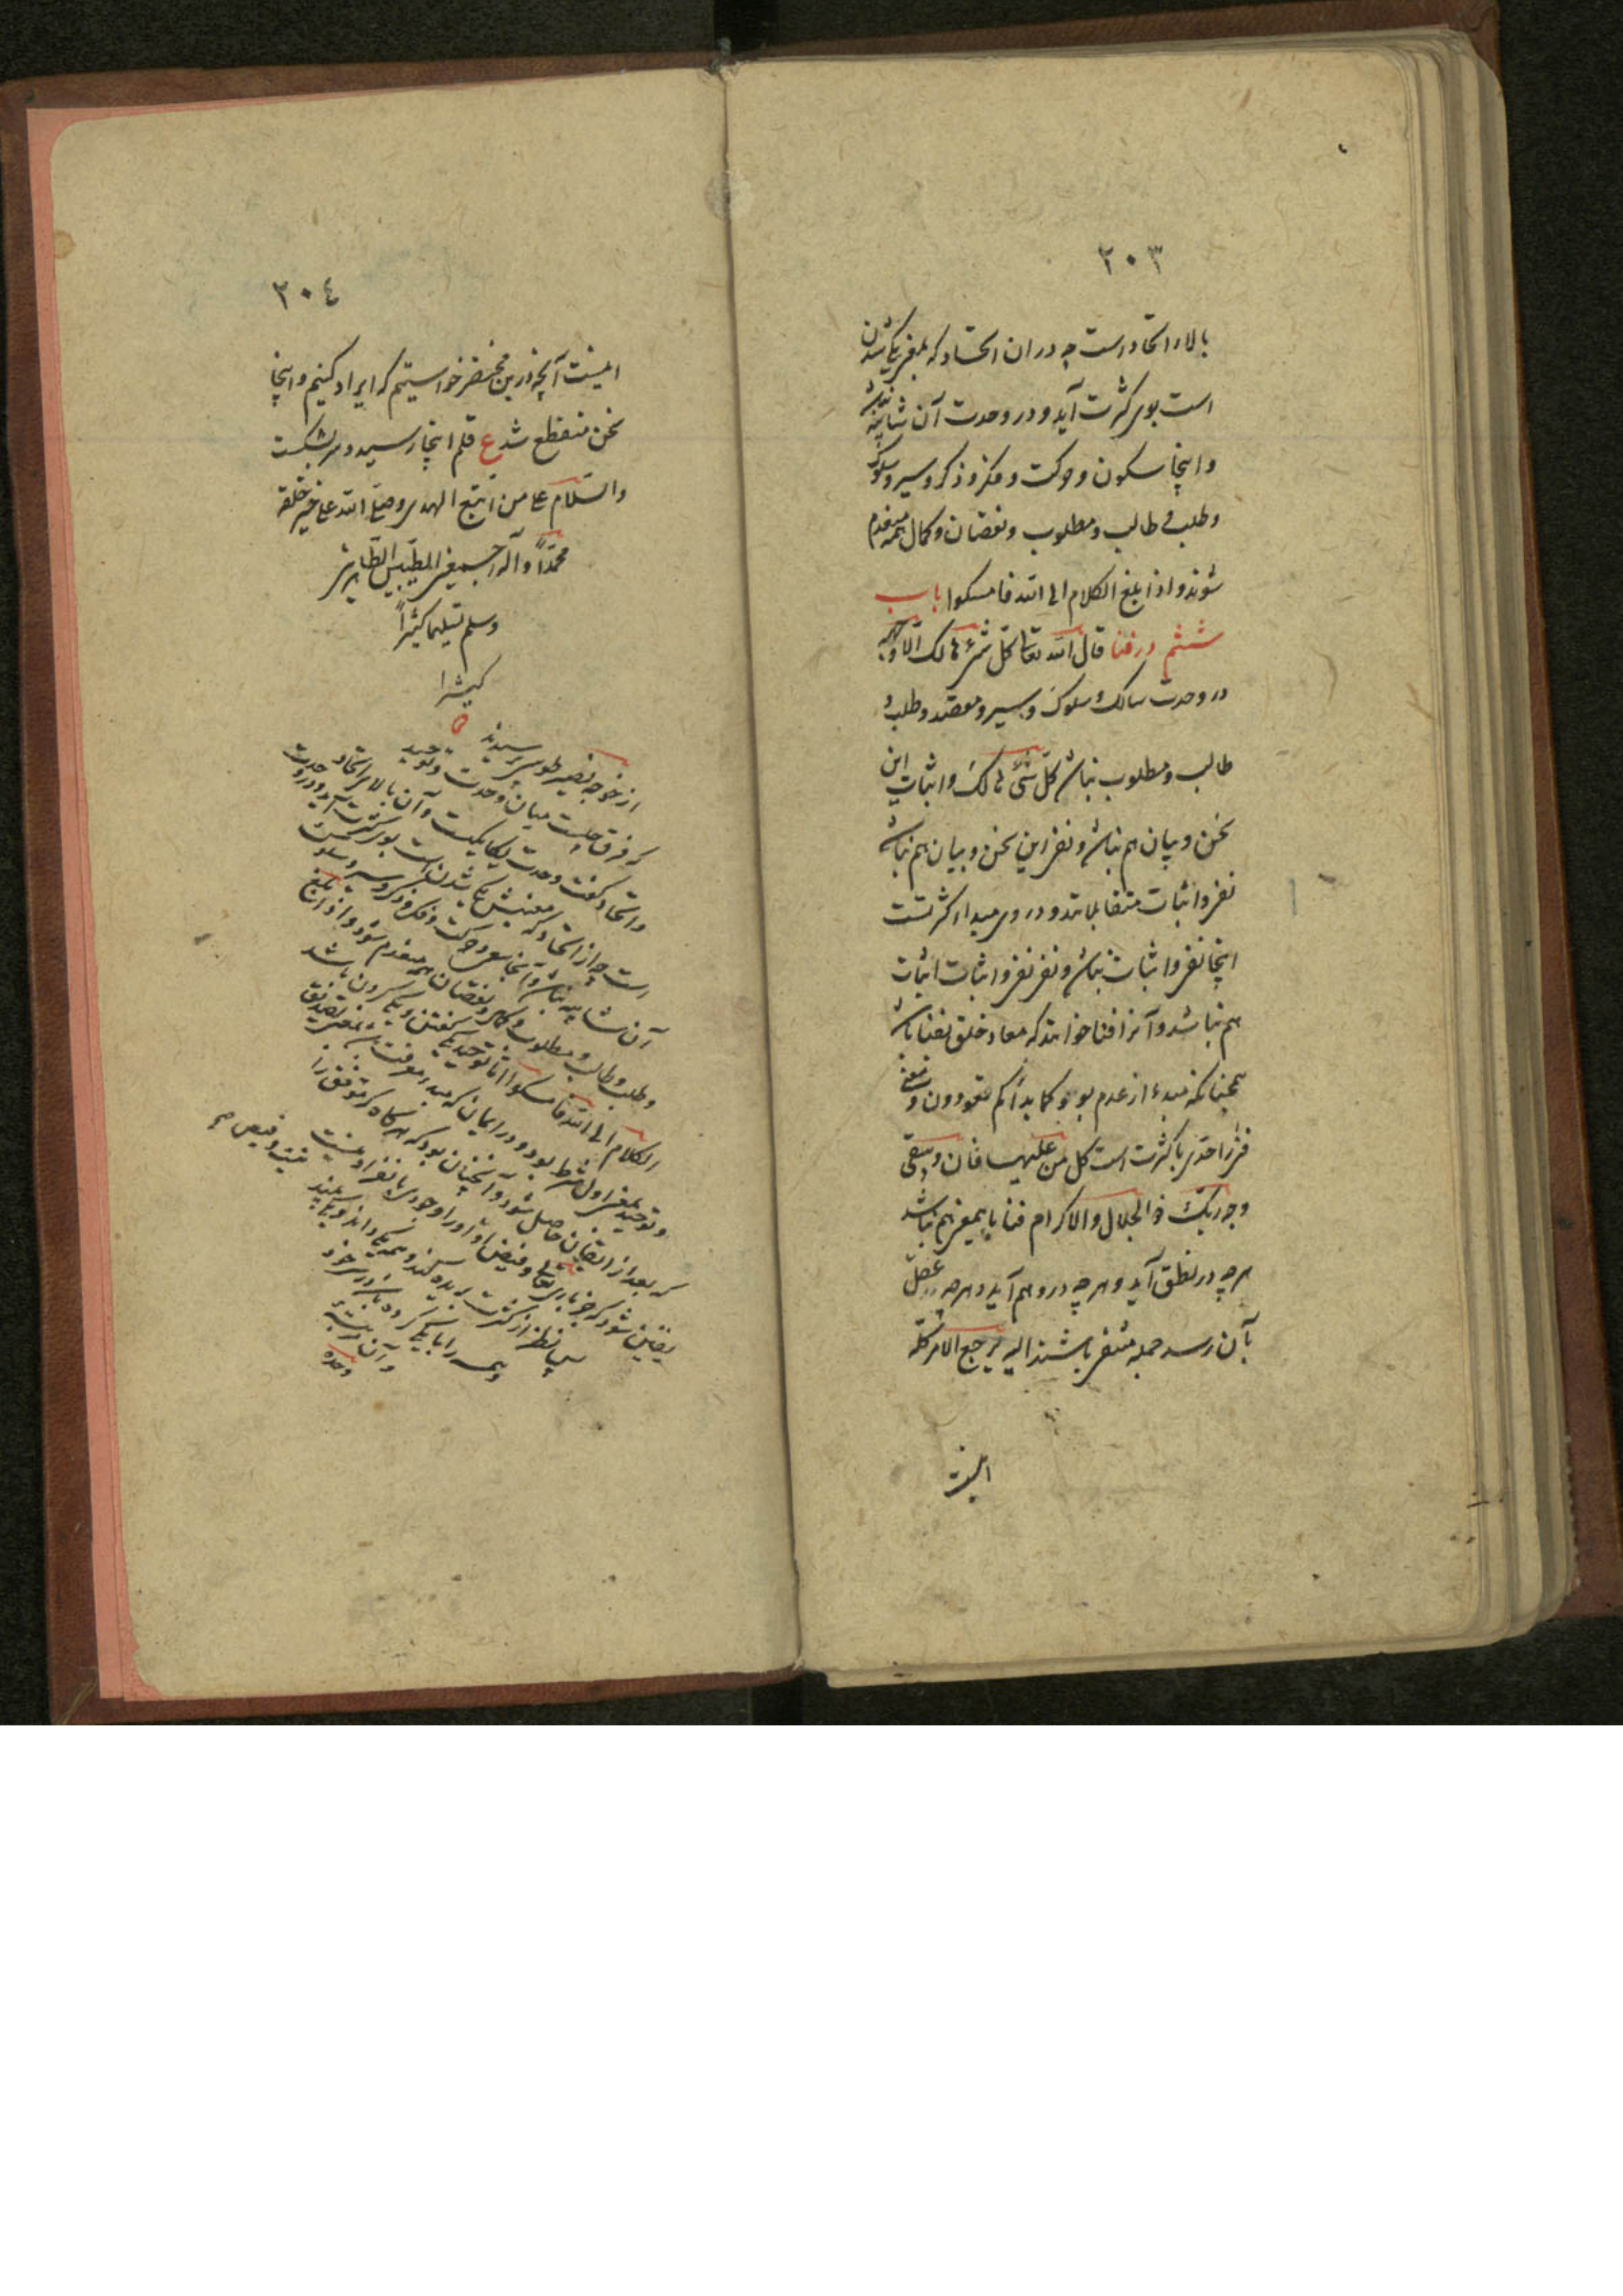 ۲۰۳
بالاء اتحاد است چه در ان اتحاد که بمعنی یکی شدن
است بوی کثرت آید و در وحدت آن شائبه نباشد
و اینجا سکون و حرکت و فکر و ذکر و سیر و سلوک
و طلب و طالب و مطلوب و نقصان و کمال همه منعدم
شوند و اذا بلغ الکلام الی الله فامسکوا باب
ششم در فنا قال الله تعالی کل شیء هالک الا وجهه
در وحدت سالک و سلوک و سیر و مقصد و طلب و
طالب و مطلوب نباشد کل شیء هالک و اثبات این
سخن و بیان هم نباشد و نفی این سخن و بیان هم نباشد
نفی و اثبات متقابلانند و دروی مبداء کثرتست
اینجا نفی و اثبات نباشد و نفی نفی و اثبات اثبات
هم نباشد و آنرا فنا خوانند که معاد خلق بفنا باشد
همچنانکه مبدء از عدم بود کما بدأکم تعودون و معنی
فنا را حدی با کثرت است کل من علیها فان و یبقی
وجه ربک ذو الجلال و الاکرام فنا باین معنی هم نباشد
هر چه در نطق آید و هر چه در وهم آید و هر چه عقل
بآن رسد جمله منتفی باشند الیه یرجع الامر کله
اینست
۲۰٤
اینست آنچه درین مختصر خواستیم که ایراد کنیم و اینجا
سخن منقطع شد ع قلم اینجا رسید و سر بشکست
والسلام علی من اتبع الهدی و صلی الله علی خیر خلقه
محمداً و آله اجمعین الطیبین الطاهرین
و سلم تسلیما کثیراً
کثیرا
از خواجه نصیر طوسی پرسیدند
که فرق چیست میان وحدت و توحید
و اتحاد گفت وحدت یکیست و آن بالای اتحاد
است چه از اتحاد که معنیش یکی شدن است بوی کثرت آید و در وحدت
آن شایبه نباشد و آنجا سعی و حرکت و فکر و ذکر و سیر و سلوک
و طلب و طالب و مطلوب و کمال و نقصان همه منعدم شود و اذا بلغ
الکلام الی الله فامسکوا اما توحید یکی گفتن و یکی کردن باشد
و توحید بمعنی اول شرط بود در ایمان که مبدء معرفت بود بمعنی تصدیق
که بعد از ایقان حاصل شود و آنچنان بود که هرگاه که موقن را
یقین شود که جز باری تعالی و فیض او را وجودی بانفراد نیست
پس نظر از کثرت بریده کند و همه یکی داند و یکی بیند
و همه را با یکی کرده باشد در سر خود
و آن مرتبه
وحده